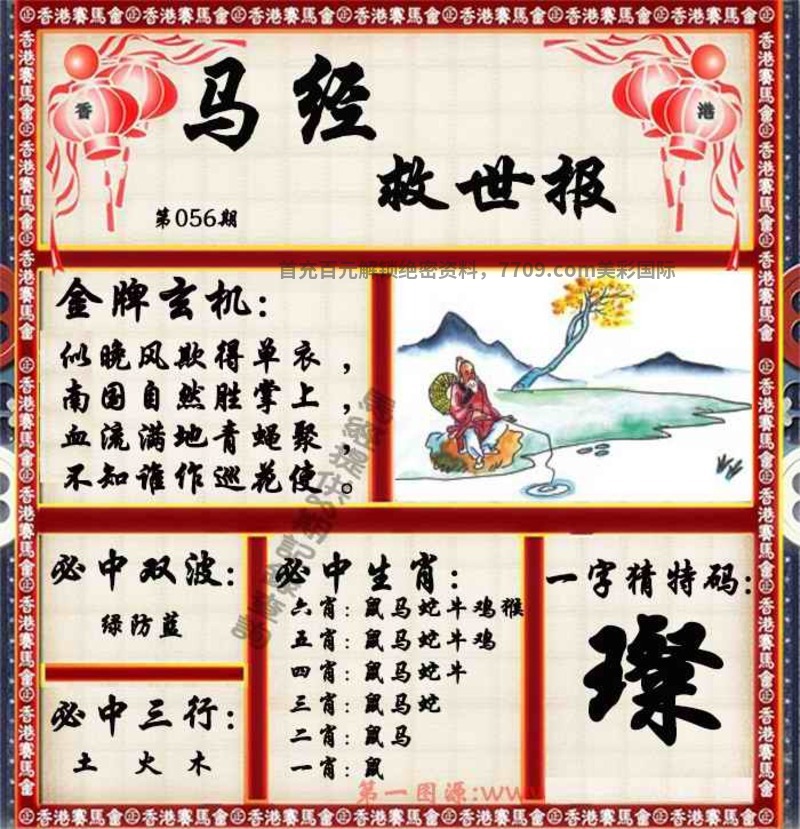 香港賽馬會㊣香港賽馬會㊣香港賽馬會㊣香港賽馬會㊣香港賽馬會㊣香港賽馬會
香
港
马经
救世报
第056期
首充百元解锁绝密资料，7709.com美彩国际
金牌玄机：
似晚风欺得单衣，
南国自然胜掌上，
血流满地青蝇聚，
不知谁作巡花使。
必中双波：
绿防蓝
必中三行：
土 火 木
必中生肖：
六肖：鼠马蛇牛鸡猴
五肖：鼠马蛇牛鸡
四肖：鼠马蛇牛
三肖：鼠马蛇
二肖：鼠马
一肖：鼠
一字猜特码：
璨
第一图源:ww